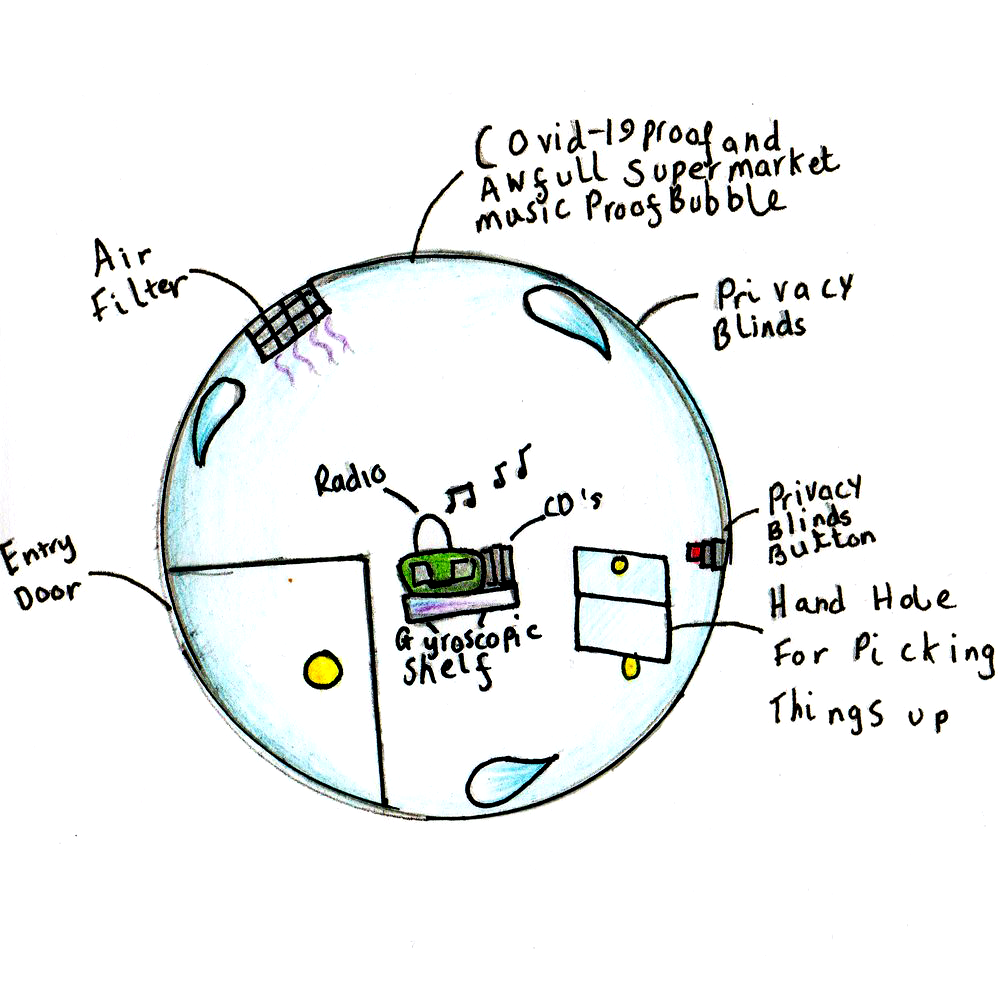 Covid-19 proof and
Awfull Supermarket
music Proof Bubble
Air
Filter
Privacy
Blinds
Radio
CD's
Privacy
Blinds
Button
Entry
Door
Gyroscopic
Shelf
Hand Hole
For Picking
Things up